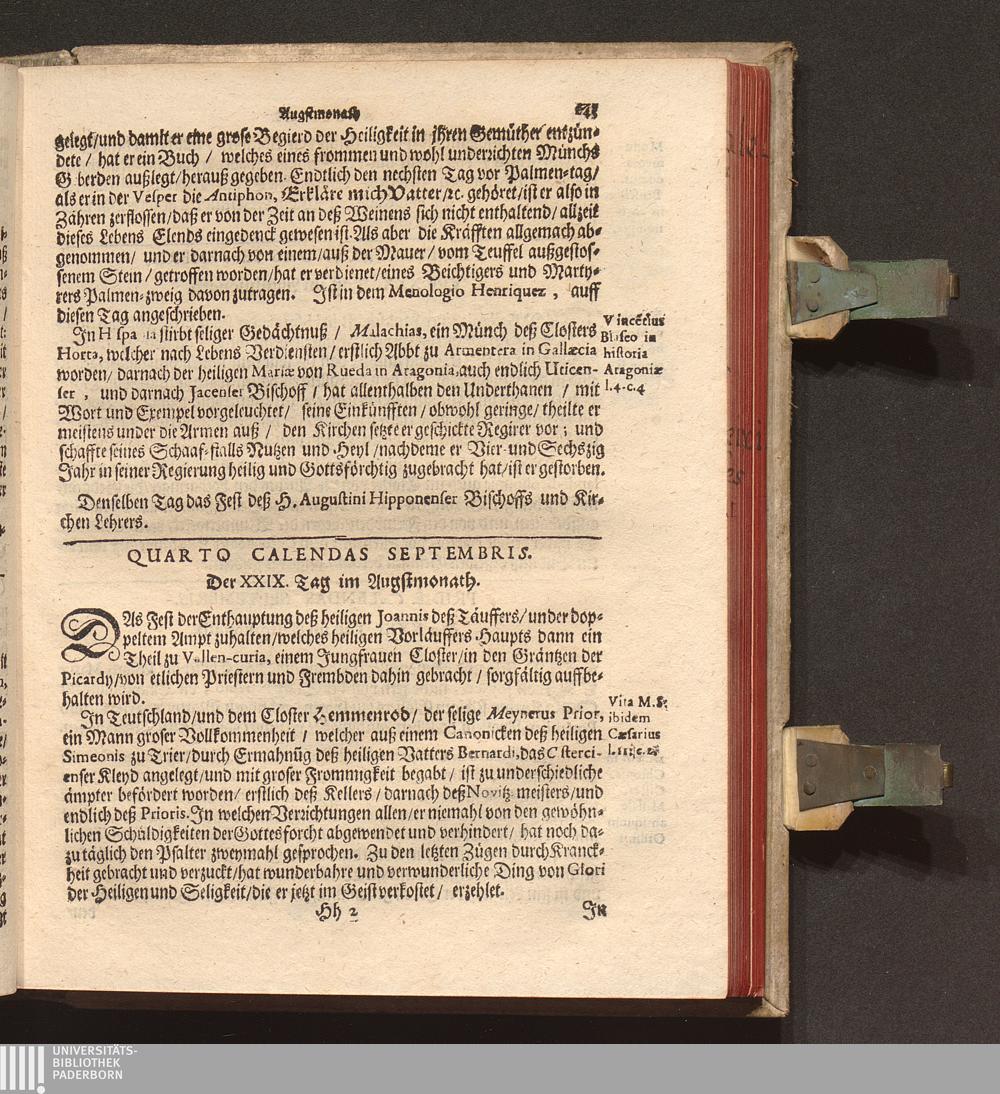 Augstmonath 245
gelegt/und damit er eine grose Begierd der Heiligkeit in jhren Gemüther entzün-
dete / hat er ein Buch / welches eines frommen und wohl underzichten Münchs
G berden außlegt/herauß gegeben. Endtlich den nechsten Tag vor Palmen-tag/
als er in der Vesper die Antiphon, Erkläre mich Vatter/ꝛc. gehöret/ist er also in
Zähren zerflossen/daß er von der Zeit an deß Weinens sich nicht enthaltend/allzeit
dieses Lebens Elends eingedenck gewesen ist. Als aber die Kräfften allgemach ab-
genommen/ und er darnach von einem/auß der Mauer/ vom Teuffel außgestos-
senem Stein/ getroffen worden/hat er verdienet/eines Beichtigers und Marty-
rers Palmen-zweig davon zutragen. Ist in dem Menologio Henriquez, auff
diesen Tag angeschrieben.
In Hispania stirbt seliger Gedächtnuß / Malachias, ein Münch deß Closters
Horta, welcher nach Lebens Verdiensten/ erstlich Abbt zu Armentera in Gallæcia
worden/ darnach der heiligen Mariæ von Rueda in Aragonia, auch endlich Uticen-
ser, und darnach Jacenser Bischoff / hat allenthalben den Underthanen / mit
Wort und Exempel vorgeleuchtet/ seine Einkünfften/ obwohl geringe/ theilte er
meistens under die Armen auß / den Kirchen setzte er geschickte Regirer vor; und
schaffte seines Schaaf-stalls Nutzen und Heyl /nachdeme er Vier-und Sechszig
Jahr in seiner Regierung heilig und Gottsförchtig zugebracht hat/ist er gestorben.
Vincētius
Blasco in
historia
Aragoniæ
l.4.c.4
Denselben Tag das Fest deß H. Augustini Hipponenser Bischoffs und Kir-
chen Lehrers.
QUARTO CALENDAS SEPTEMBRIS.
Der XXIX. Tag im Augstmonath.
DAs Fest der Enthauptung deß heiligen Joannis deß Täuffers/under dop-
peltem Ampt zuhalten/welches heiligen Vorläuffers Haupts dann ein
Theil zu Vallen-curia, einem Jungfrauen Closter/in den Gräntzen der
Picardy/von etlichen Priestern und Frembden dahin gebracht / sorgfältig auffbe-
halten wird.
In Teutschland/und dem Closter Hemmenrod/ der selige Meynerus Prior,
ein Mann groser Vollkommenheit / welcher auß einem Canonicken deß heiligen
Simeonis zu Trier/durch Ermahnūg deß heiligen Vatters Bernardi, das Cisterci-
enser Kleyd angelegt/und mit groser Frommigkeit begabt / ist zu underschiedliche
ämpter befördert worden/ erstlich deß Kellers / darnach deß Novitz-meisters/und
endlich deß Prioris. In welchen Verzichtungen allen/er niemahl von den gewöhn-
lichen Schüldigkeiten der Gottesforcht abgewendet und verhindert/ hat noch da-
zu täglich den Psalter zweymahl gesprochen. Zu den letzten Zügen durch Kranck-
heit gebracht und verzuckt/hat wunderbahre und verwunderliche Ding von Glori
der Heiligen und Seligkeit/die er jetzt im Geist verkostet / erzehlet.
Vita M.S.
ibidem
Cæsarius
Hh 2 In
UNIVERSITÄTS-
BIBLIOTHEK
PADERBORN